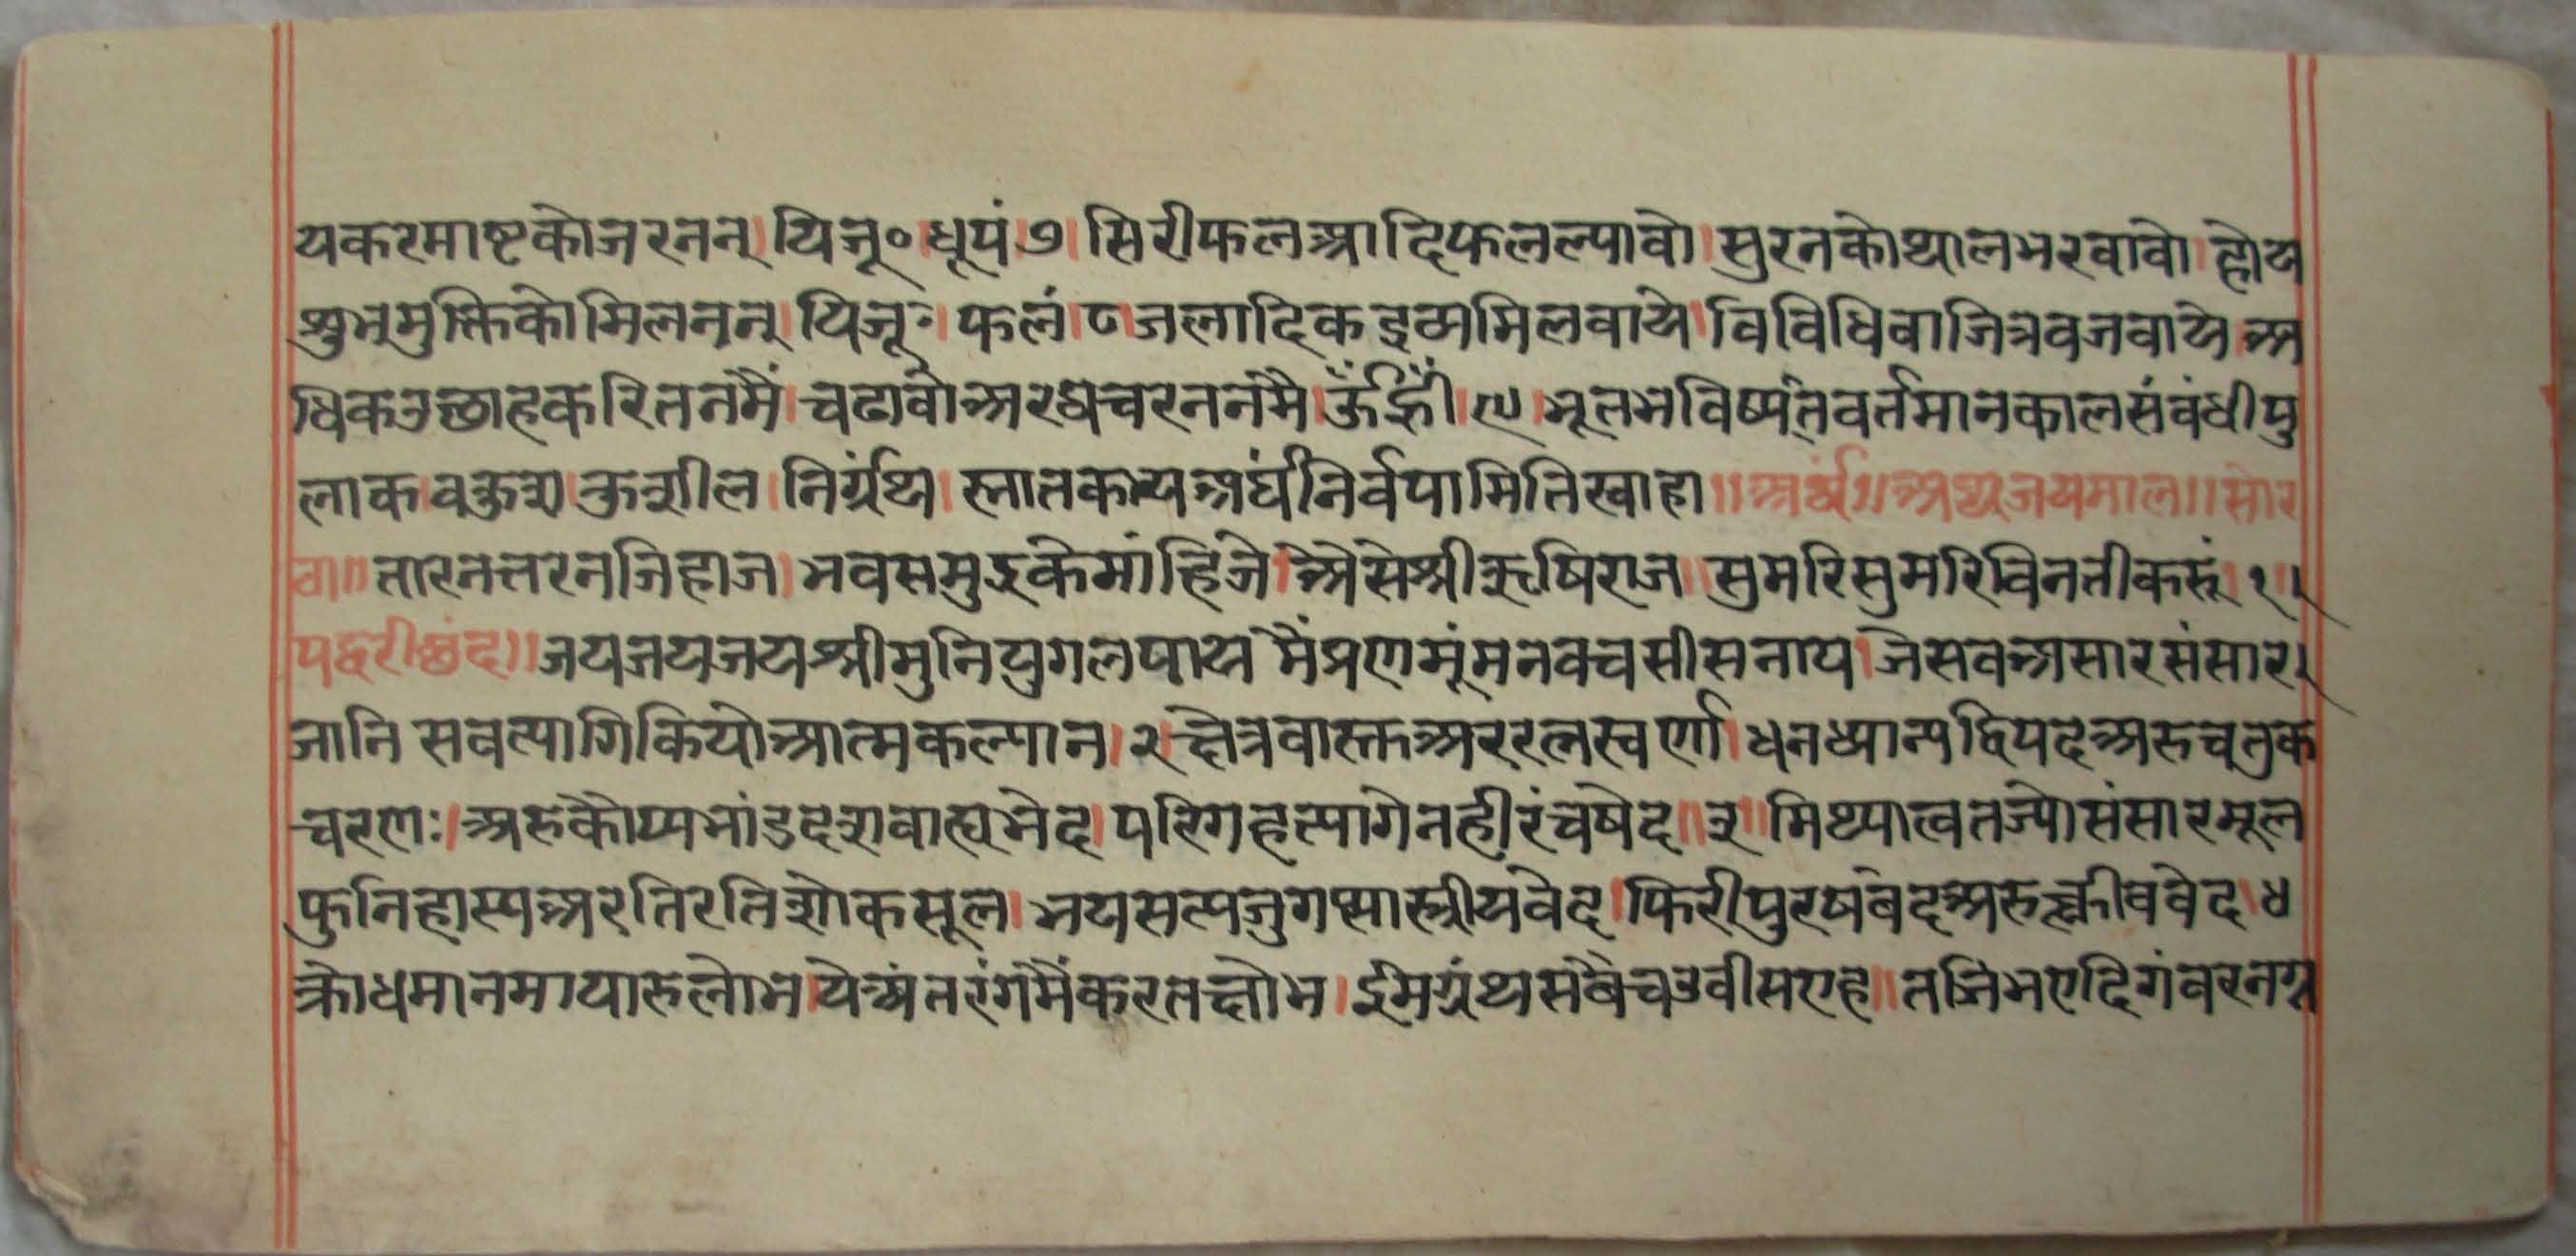 यकरमाष्टकोजरनन्। यिजू०। धूपं। ७। सिरीफलआदिफलल्यावो। सुरनकोथालभरवावो। होय
शुभमुक्तिकोमिलनन्। यिजू०। फलं। ८। जलादिकइठामिलवाये। विविधिवाजित्रवजवाये। अ
धिकउछाहकरितनमैं। चढावोअरघचरननमै। ऊँह्रीं। ९। भूतभविष्यत्वर्तमानकालसंबंधीपु
लाक। वकुश। कुशील। निर्ग्रंथ। स्नातकायअर्घंनिर्वपामितिस्वाहा॥ अर्घं॥ अथजयमाल॥ सोर
ठा॥ तारनतरनजिहाज। भवसमुद्रकेमांहिजे। अैसेश्रीऋषिराज। सुमरिसुमरिविनतीकरूं। १।
पद्धरीछंद॥ जयजयजयश्रीमुनियुगलपाय मैंप्रणमूंमनवचसीसनाय। जेसवअसारसंसार।
जानि सवत्यागिकियोआत्मकल्यान। २। क्षेत्रवास्तअररत्नस्वर्ण। धनध्यान्यद्विपदअरुचतुक
चरणः। अरुकौप्यभांडदशवाह्यभेद। परिगहत्यागेनहीरंचषेद॥ ३॥ मिथ्यात्वतज्योसंसारमूल
फुनिहास्यअरतिरतिशोकसूल। भयसत्यजुगप्सास्त्रीयवेद। फिरीपुरषवेदअरुक्लीववेद। ४
क्रोधमानमायारुलोभ। येअंतरंगमैंकरतक्षोभ। ईमग्रंथसबैचउवीसएह॥ तजिभएदिगंवरनग्न